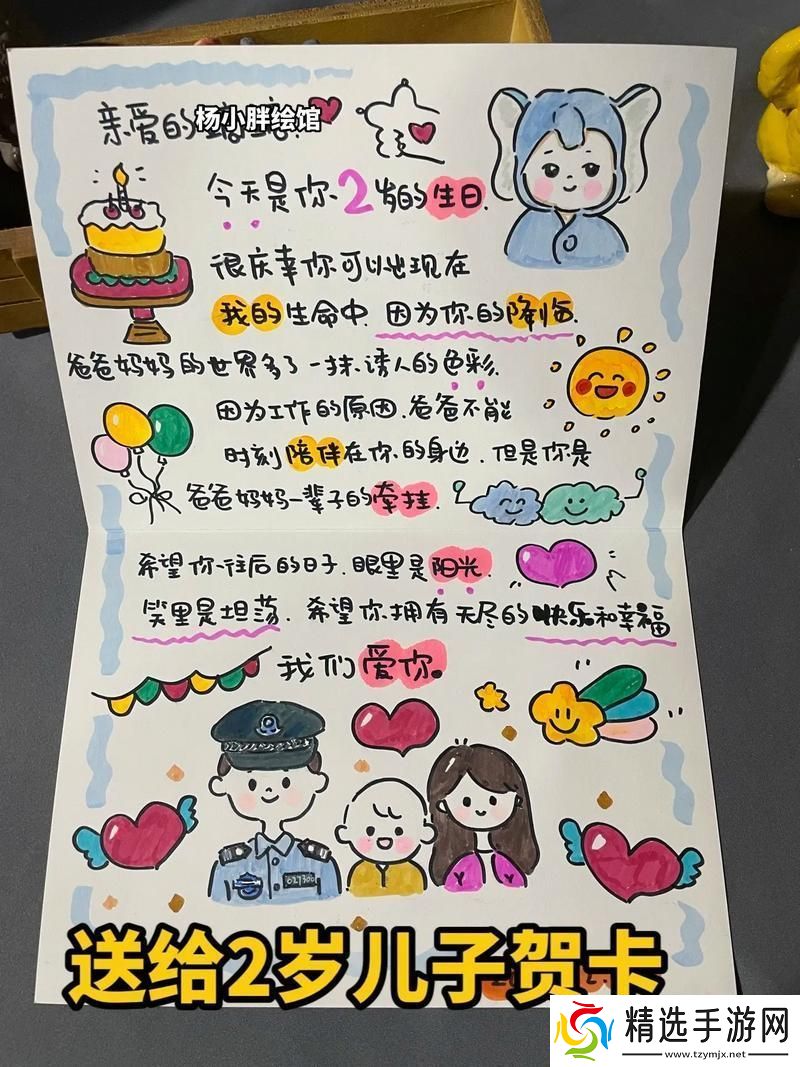 亲爱的
杨小胖绘馆
今天是你2岁的生日.
很庆幸你可以出现在
我的生命中.因为你的降临.
爸爸妈妈的世界多了一抹诱人的色彩.
因为工作的原因.爸爸不能
时刻陪伴在你的身边.但是你是
爸爸妈妈一辈子的牵挂.
希望你往后的日子.眼里是阳光.
笑里是坦荡.希望你拥有无尽的快乐和幸福
我们爱你。
送给2岁儿子贺卡
精选手游网
www.tzymjx.net